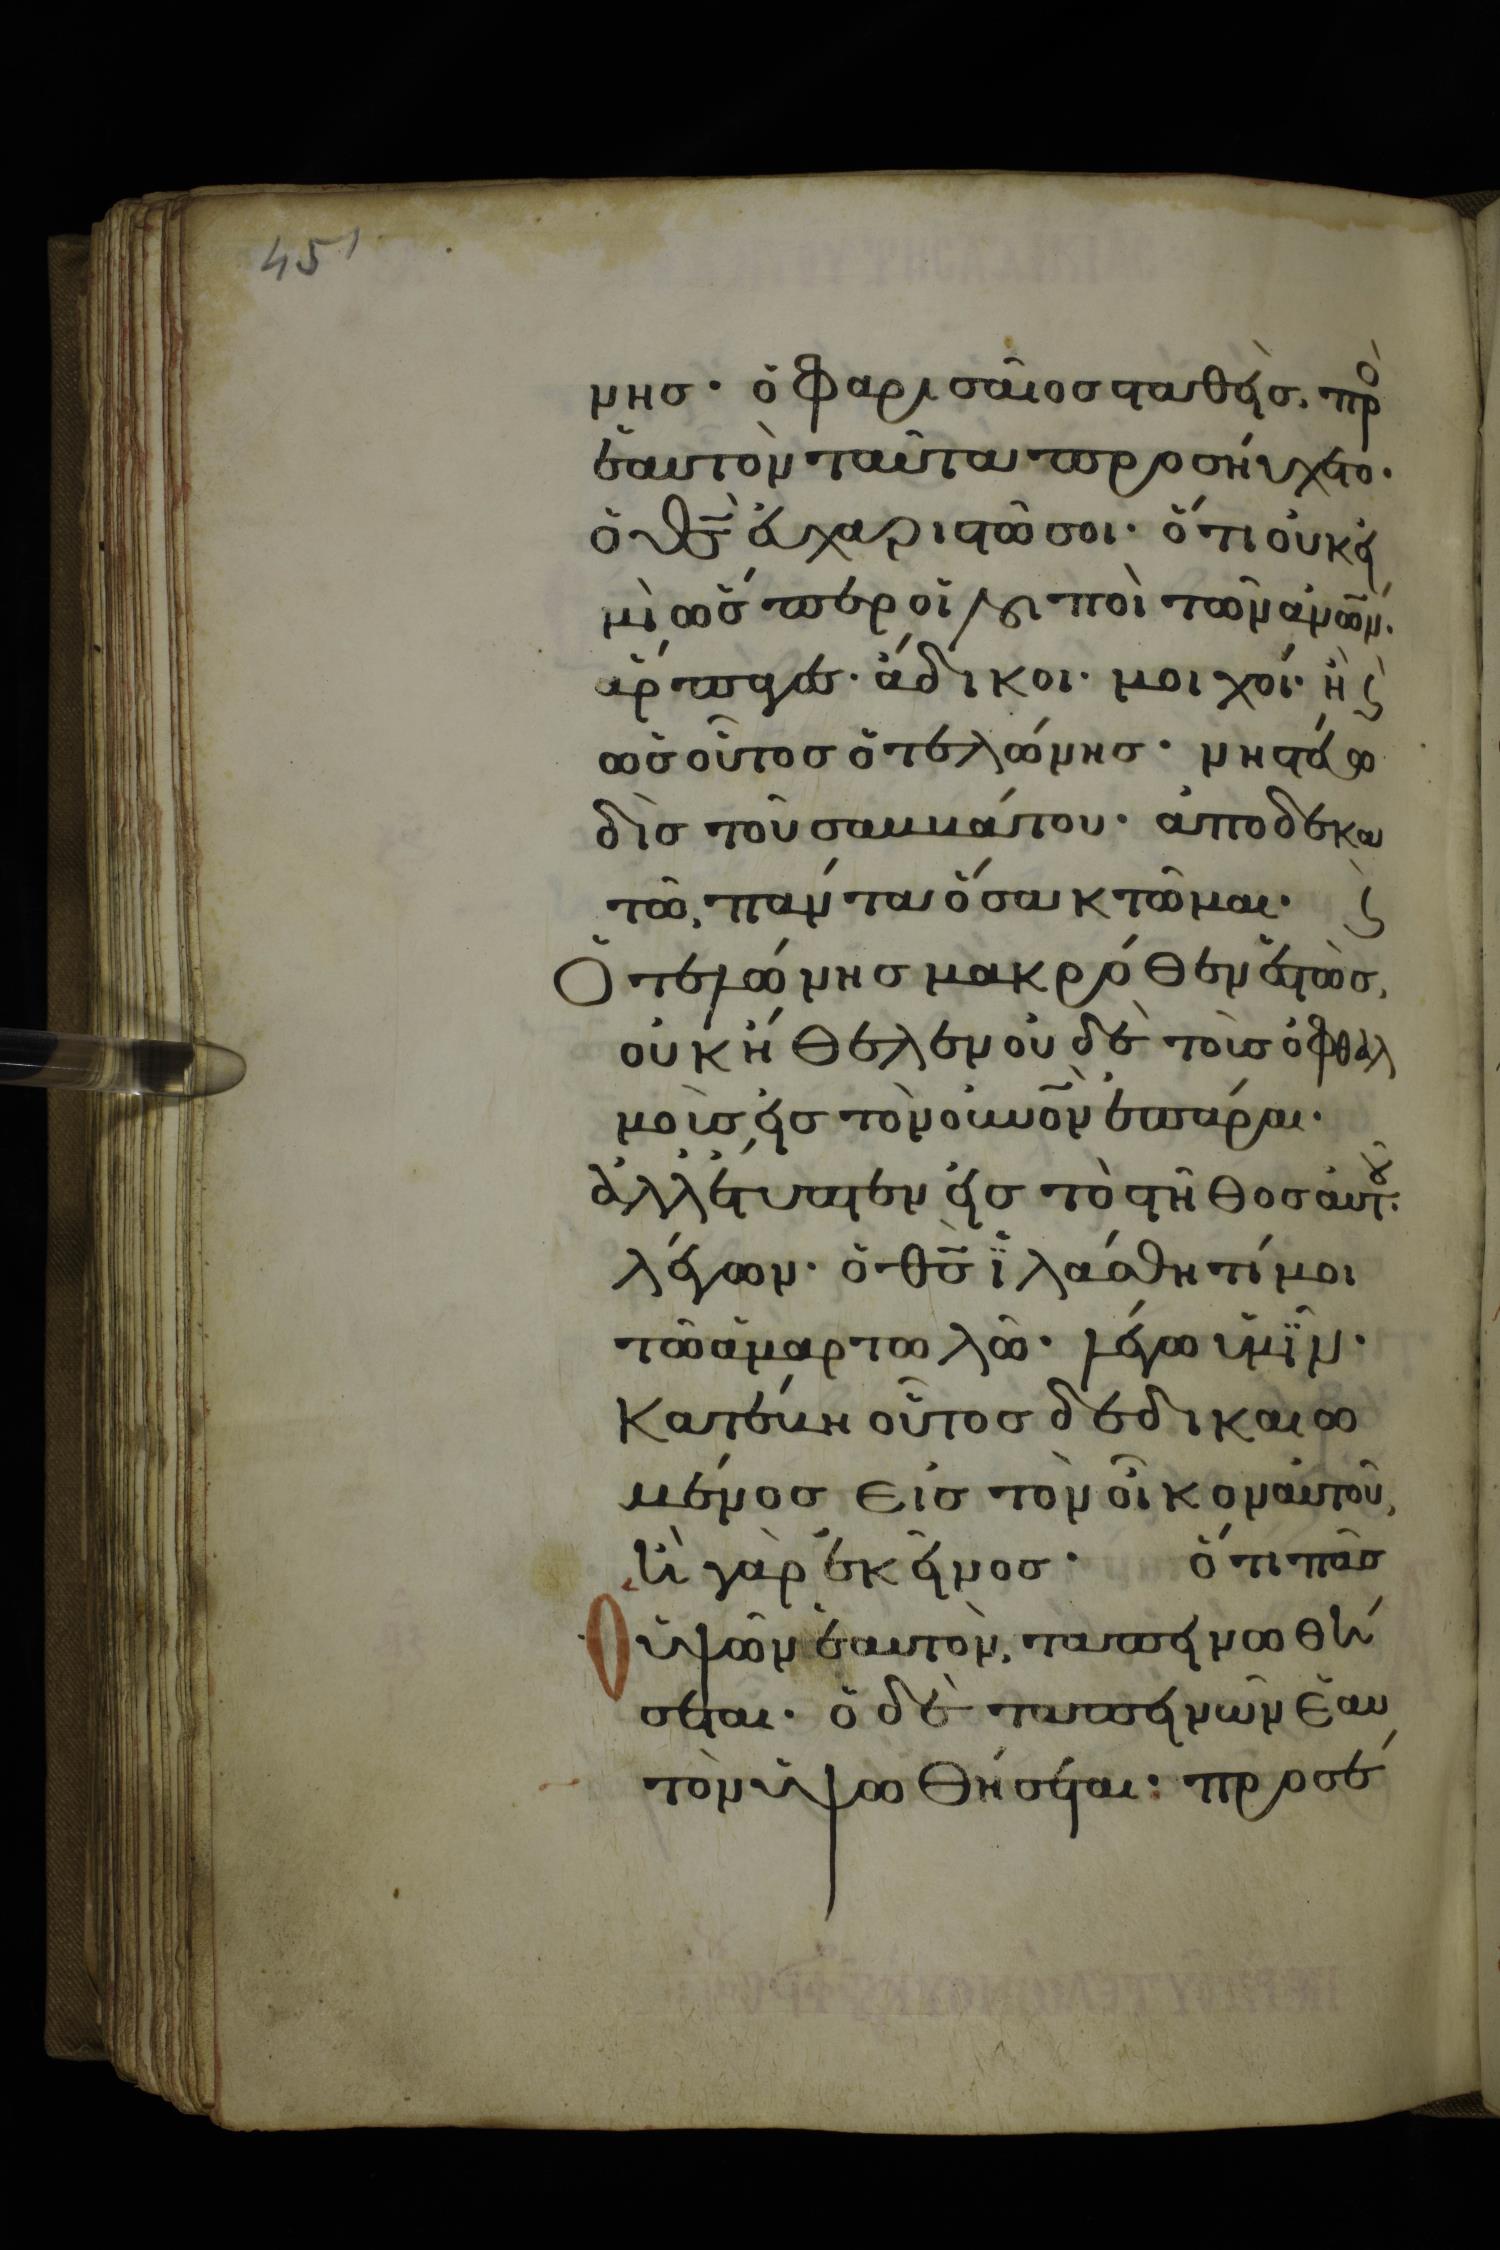 451
νησ· ὁ φαρισαῖοσ σταθεὶσ, πρὸ
ἑαυτὸν ταῦτα προσηύχετο·
ὁ θ̅σ̅ εὐχαριστῶ σοι· ὅτι οὐκ εἰ
μὶ ὥσπερ οἱ λοιποὶ τῶν ἀν̅ω̅ν·
ἅρπαγεσ· ἄδικοι· μοιχοί· ἢ ϛ
ὡσ οὗτοσ ὁ τελώνησ· νηστεύω
δὶσ τοῦ σαββάτου· ἀποδεκα
τῶ, πάντα ὅσα κτῶμαι· ϛ
Ὁ τελώνησ μακρόθεν ἑστὼσ,
οὐκ ἤθελεν οὐδὲ τοὺσ ὀφθαλ
μοὺσ εἰσ τὸν οὐν̅ο̅ν ἐπάραι·
ἀλλ' ἔτυπτεν εἰσ τὸ στῆθοσ αὐτοῦ·
λέγων· ὁ θ̅σ̅ ἱλάσθητί μοι
τῶ ἁμαρτωλῶ· λέγω ὑμῖν·
Κατέβη οὗτοσ δεδικαιω
μένοσ εἰσ τὸν οἶκον αὐτοῦ,
ἢ γὰρ ἐκεῖνοσ· ὅτι πᾶσ
Ὁ ὑψῶν ἑαυτὸν, ταπεινωθή
σεται· ὁ δὲ ταπεινῶν ἑαυ
τὸν ὑψωθήσεται: προσέ